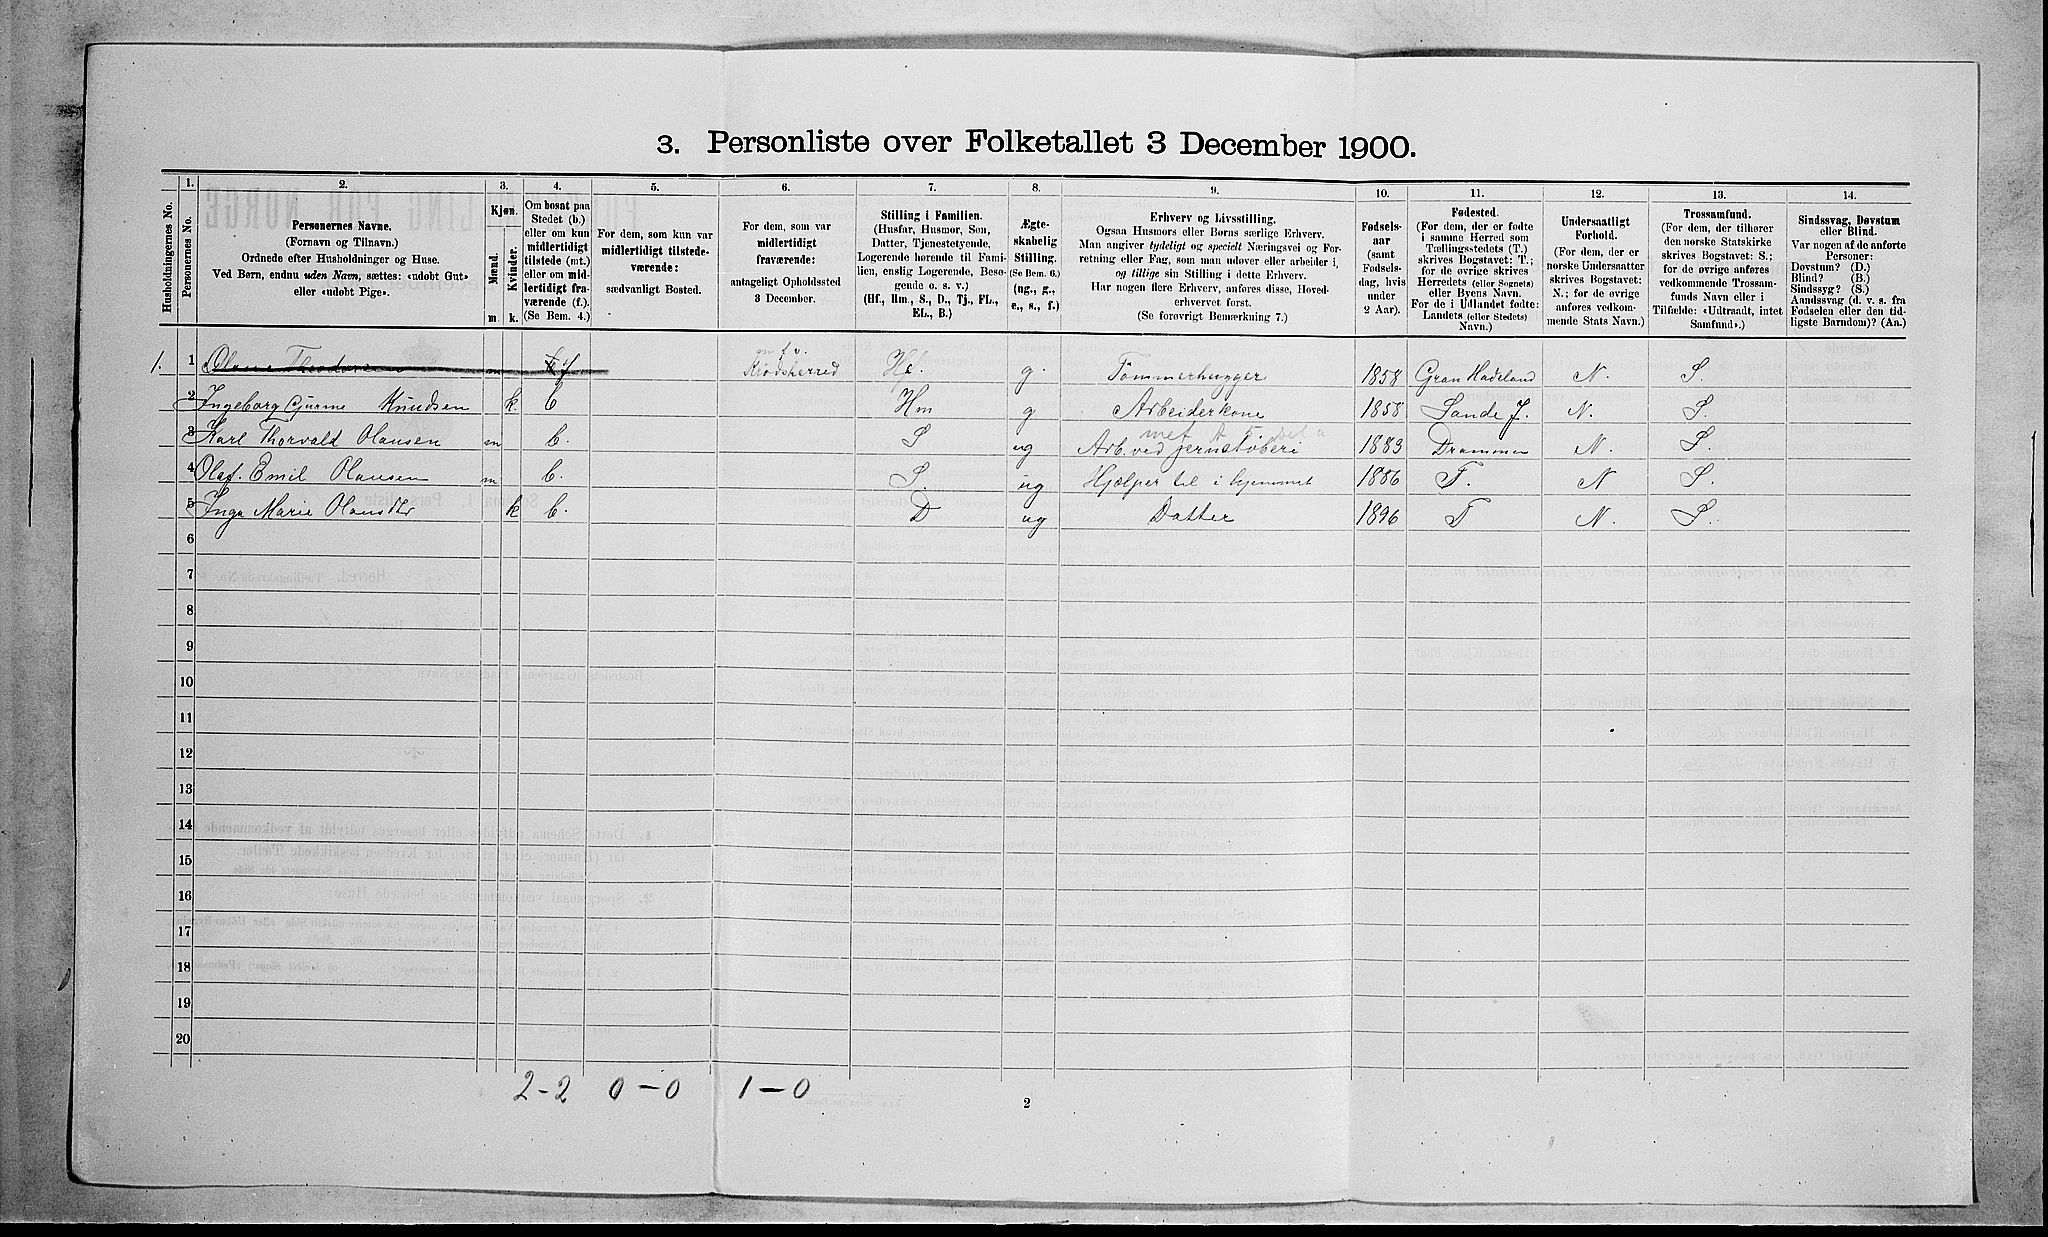 3. Personliste over Folketallet 3 December 1900.
1. 2. 3. 4. 5. 6. 7. 8. 9. 10. 11. 12. 13. 14.
Husholdningernes No.
Personernes No.
Personernes Navne.
(Fornavn og Tilnavn.)
Ordnede efter Husholdninger og Huse.
Ved Børn, endnu uden Navn, sættes: «udobt Gut»
eller «udobt Pige».
Kjøn.
Mænd.
Kvinder.
m. k.
Om bosat paa
Stedet (b.)
eller om kun
midlertidigt
tilstede (mt.)
eller om mid-
lertidigt fra-
værende (f.).
(Se Bem. 4.)
For dem, som kun var
midlertidigt tilstede-
værende:
sædvanligt Bosted.
For dem, som var
midlertidigt
fraværende:
antageligt Opholdssted
3 December.
Stilling i Familien.
(Husfar, Husmor, Søn,
Datter, Tjenestetyende,
Logerende hørende til Fami-
lien, enslig Logerende, Besø-
gende o. s. v.)
(Hf., Hm., S., D., Tj., FL.,
EL., B.)
Ægte-
skabelig
Stilling.
(Se Bem. 6.)
(ug., g.,
e., s., f.)
Erhverv og Livsstilling.
Ogsaa Husmors eller Børns særlige Erhverv.
Man angiver tydeligt og specielt Næringsvei og For-
retning eller Fag, som man udøver eller arbeider i,
og tillige sin Stilling i dette Erhverv.
Har nogen flere Erhverv, anføres disse, Hoved-
erhvervet først.
(Se forøvrigt Bemærkning 7.)
Fødsels-
aar
(samt
Fødsels-
dag, hvis
under
2 Aar).
Fødested.
(For dem, der er fødte
i samme Herred som
Tællingsstedets (T.)
skrives Bogstavet: T.;
for de øvrige skrives
Herredets (eller Sognets)
eller Byens Navn.
For de i Udlandet fødte:
Landets (eller Stedets)
Navn.)
Undersaatligt
Forhold.
(For dem, der er
norske Undersaatter
skrives Bogstavet:
N.; for de øvrige
anføres vedkom-
mende Stats Navn.)
Trossamfund.
(For dem, der tilhører
den norske Statskirke
skrives Bogstavet: S.;
for de øvrige anføres
vedkommende Trossam-
funds Navn eller i
Tilfælde: «Udtraadt, intet
Samfund».)
Sindssvag, Døvstum
eller Blind.
Var nogen af de anførte
Personer:
Døvstum? (D.)
Blind? (B.)
Sindssyg? (S.)
Aandssvag (d. v. s. fra
Fødselen eller den tid-
ligste Barndom)? (Aa.)
1. 1 m f Krødsherred Hf. g. Tømmerhugger 1858 Gran Hadeland N. S.
2 Ingeborg Knudsen k. b Hm g Arbeiderkone 1858 Sande J. N. S.
3 Karl Thorvald Olausen m b. S ug Arb. ved jernstøberi 1883 Drammen N. S.
4 Olaf. Emil Olausen m b. S. ug Hjælper til i hjemmet 1886 T. N S.
5 Inga Marie Olausdtr k b. D ug Datter 1896 T N. S.
6
7
8
9
10
11
12
13
14
15
16
17
18
19
20
2-2 0-0 1-0
2